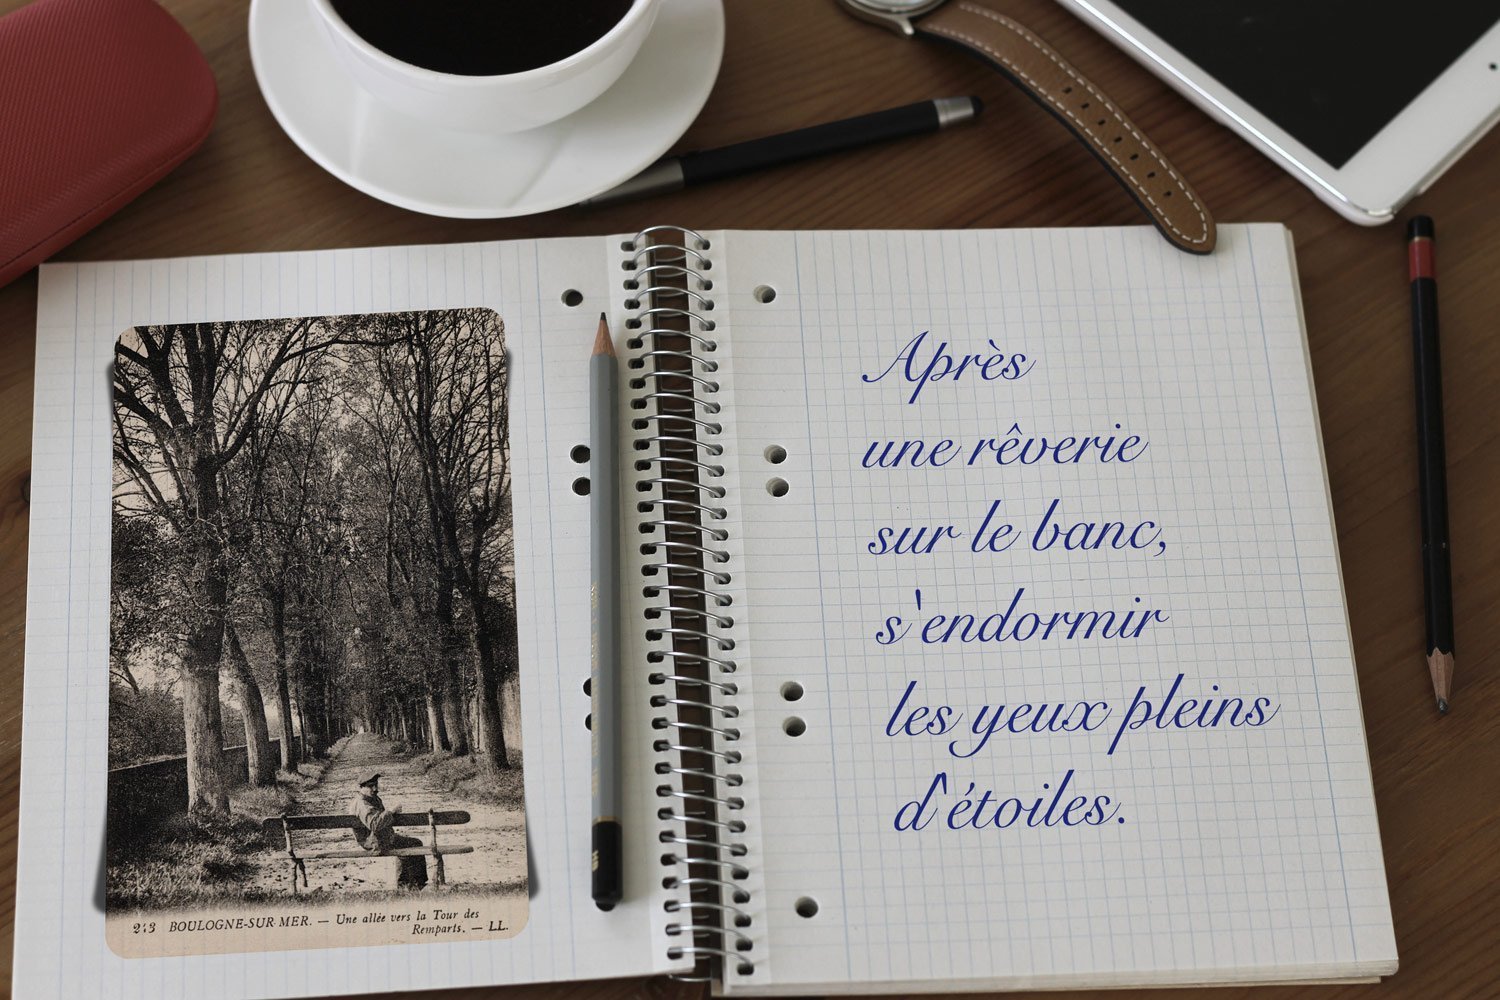 213 BOULOGNE-SUR-MER. — Une allée vers la Tour des
Remparts. — LL.
Après
une rêverie
sur le banc,
s'endormir
les yeux pleins
d'étoiles.